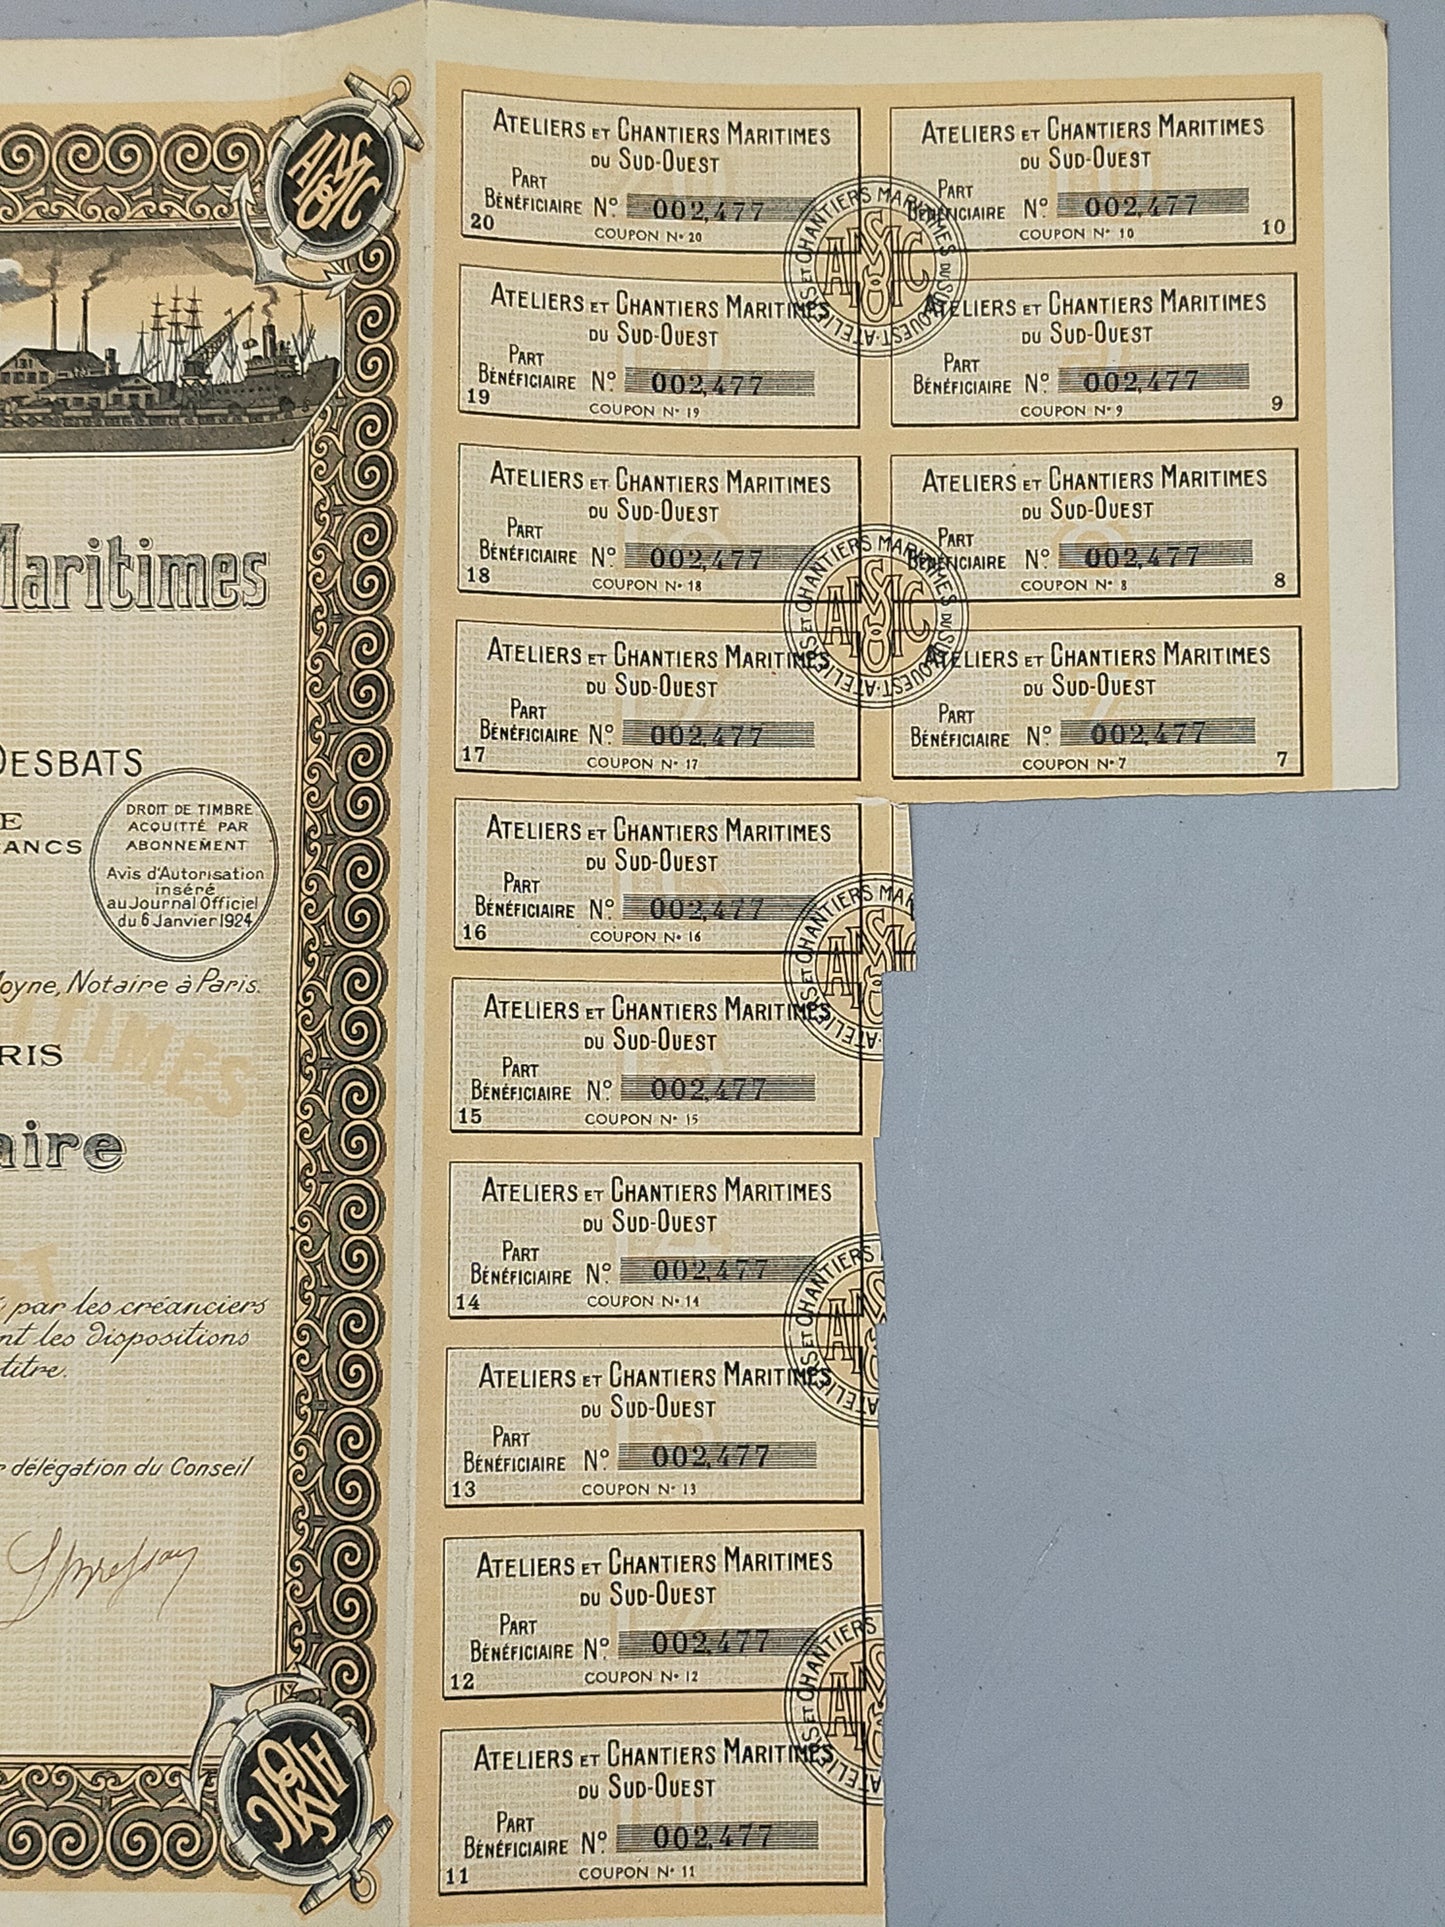 Maritimes
DESBATS
DROIT DE TIMBRE
ACQUITTÉ PAR
ABONNEMENT
Avis d'Autorisation
inséré
au Journal Officiel
du 6 Janvier 1924
E
ANCS
oyne, Notaire à Paris.
RIS
aire
par les créanciers
nt les dispositions
titre.
délégation du Conseil
ATELIERS ET CHANTIERS MARITIMES
DU SUD-OUEST
PART
BÉNÉFICIAIRE Nº 002,477
20 COUPON Nº 20
ATELIERS ET CHANTIERS MARITIMES
DU SUD-OUEST
PART
BÉNÉFICIAIRE Nº 002,477
COUPON Nº 10 10
ATELIERS ET CHANTIERS MARITIMES
DU SUD-OUEST
PART
BÉNÉFICIAIRE Nº 002,477
19 COUPON Nº 19
ATELIERS ET CHANTIERS MARITIMES
DU SUD-OUEST
PART
BÉNÉFICIAIRE Nº 002,477
COUPON Nº 9 9
ATELIERS ET CHANTIERS MARITIMES
DU SUD-OUEST
PART
BÉNÉFICIAIRE Nº 002,477
18 COUPON Nº 18
ATELIERS ET CHANTIERS MARITIMES
DU SUD-OUEST
PART
BÉNÉFICIAIRE Nº 002,477
COUPON Nº 8 8
ATELIERS ET CHANTIERS MARITIMES
DU SUD-OUEST
PART
BÉNÉFICIAIRE Nº 002,477
17 COUPON Nº 17
ATELIERS ET CHANTIERS MARITIMES
DU SUD-OUEST
PART
BÉNÉFICIAIRE Nº 002,477
COUPON Nº 7 7
ATELIERS ET CHANTIERS MARITIMES
DU SUD-OUEST
PART
BÉNÉFICIAIRE Nº 002,477
16 COUPON Nº 16
ATELIERS ET CHANTIERS MARITIMES
DU SUD-OUEST
PART
BÉNÉFICIAIRE Nº 002,477
15 COUPON Nº 15
ATELIERS ET CHANTIERS MARITIMES
DU SUD-OUEST
PART
BÉNÉFICIAIRE Nº 002,477
14 COUPON Nº 14
ATELIERS ET CHANTIERS MARITIMES
DU SUD-OUEST
PART
BÉNÉFICIAIRE Nº 002,477
13 COUPON Nº 13
ATELIERS ET CHANTIERS MARITIMES
DU SUD-OUEST
PART
BÉNÉFICIAIRE Nº 002,477
12 COUPON Nº 12
ATELIERS ET CHANTIERS MARITIMES
DU SUD-OUEST
PART
BÉNÉFICIAIRE Nº 002,477
11 COUPON Nº 11
ATELIERS ET CHANTIERS MARITIMES DU SUD-OUEST
ATELIERS ET CHANTIERS MARITIMES DU SUD-OUEST